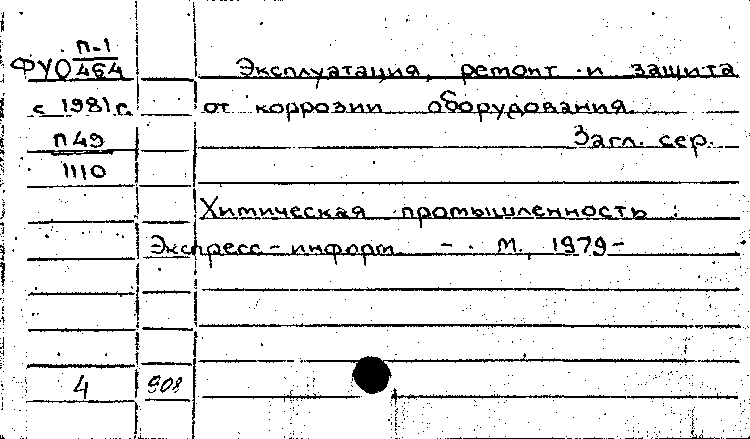 П-1
ФУО 464
с 1981г.
П49
1110
Эксплуатация, ремонт и защита
от коррозии оборудования.
Загл. сер.
Химическая промышленность :
Экспресс-информ. - М., 1979-
4 908